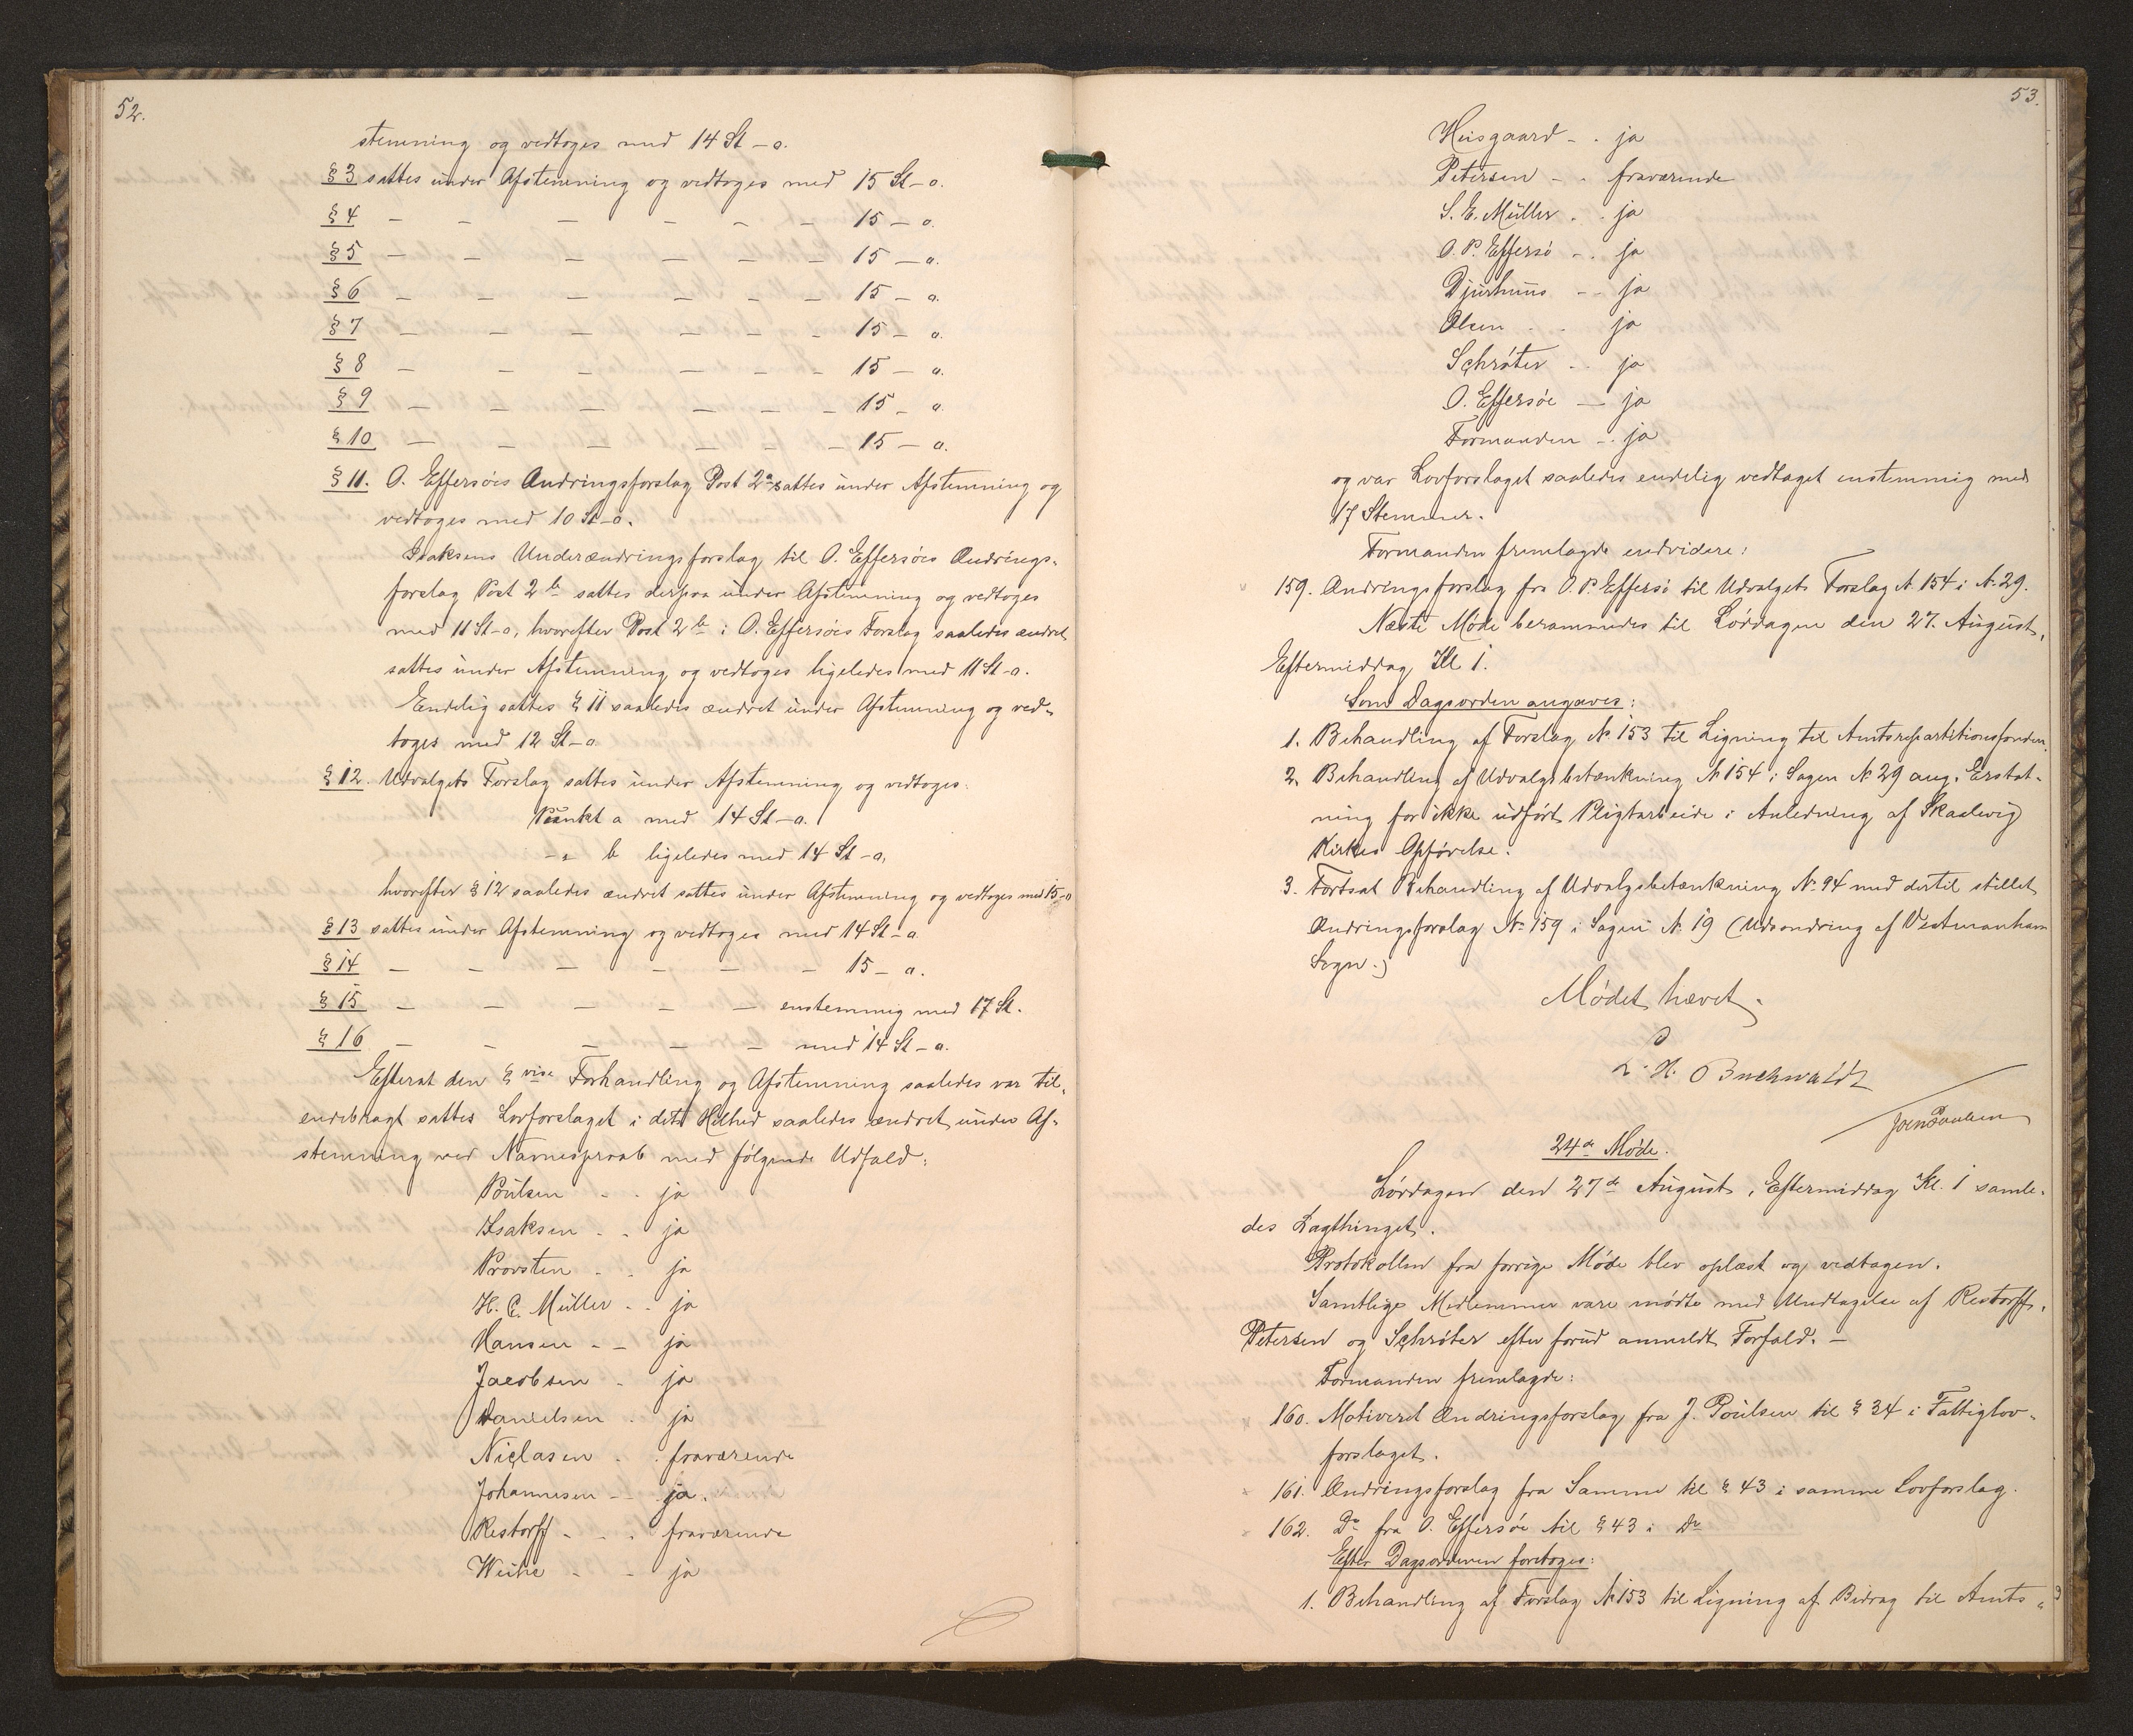 52.
stemning og vedtoges med 14 St - o.
§ 3 sattes under Afstemning og vedtoges med 15 St - o.
§ 4 - - - - - - 15 - o.
§ 5 - - - - - - 15 - o.
§ 6 - - - - - - 15 - o.
§ 7 - - - - - - 15 - o.
§ 8 - - - - - - 15 - o.
§ 9 - - - - - - 15 - o.
§ 10 - - - - - - 15 - o.
§ 11. O. Effersöes Ændringsforslag Post 2a sattes under Afstemning og
vedtoges med 10 St - o.
Isaksens Underændringsforslag til O. Effersöes Ændrings-
forslag Post 2b sattes derpaa under Afstemning og vedtoges
med 11 St - o, hvorefter Post 2b i O. Effersöes Forslag saaledes ændret
sattes under Afstemning og vedtoges ligeledes med 11 St - o.
Endelig sattes § 11 saaledes ændret under Afstemning og ved-
toges med 12 St - o
§ 12. Udvalgets Forslag sattes under Afstemning og vedtoges:
Punkt a med 14 St - o.
- " b ligeledes med 14 St - o,
hvorefter § 12 saaledes ændret sattes under Afstemning og vedtoges med 15 - o
§ 13 sattes under Afstemning og vedtoges med 14 St - o
§ 14 - - - - - - 15 - o.
§ 15 - - - - - enstemmig med 17 St.
§ 16 - - - - - med 14 St - o.
Efterat den § vise Forhandling og Afstemning saaledes var til-
endebragt sattes Lovforslaget i dets Helhed saaledes ændret under Af-
stemning ved Navneopraab med följgende Udfald:
Poulsen - - ja
Isaksen - - ja
Provsten - - ja
H. C. Müller - - ja
Hansen - - ja
Jacobsen - ja
Danielsen - ja
Niclasen - - fraværende
Johannesen - - ja.
Restorff - - - fraværende
Weihe - - ja
53.
Huusgaard - - ja
Petersen - - fraværende
S. E. Müller - - ja
O. P. Effersö - - ja
Djurhuus - - ja
Olsen - - ja
Schröter - - ja
O. Effersöe - ja
Formanden - - ja
og var Lovforslaget saaledes endelig vedtaget enstemmig med
17 Stemmer.
Formanden fremlagde endvidere:
159. Ændringsforslag fra O. P. Effersö til Udvalgets Forslag N. 154 i N. 29.
Næste Möde berammedes til Lördagen den 27. August,
Eftermiddag Kl 1.
Som Dagsorden angaves:
1. Behandling af Forslag N 153 til Ligning til Amtsrepartitionsfonden.
2. Behandling af Udvalgsbetænkning N 154 i Sagen N. 29 ang. Erstat-
ning for ikke udfört Pligtarbeide i Anledning af Skaalevig
Kirkes Opförelse.
3. Fortsat Behandling af Udvalgsbetænkning N. 94 med dertil stillet
Ændringsforslag N. 159 i Sagen N. 19 (Udsondring af Vestmanhavn
Sogn.)
Mödet hævet.
Buchwaldt
Joen Poulsen
24de Möde.
Lördagen den 27de August, Eftermiddag Kl. 1 samle-
des Lagthinget.
Protokollen fra forrige Möde blev oplæst og vedtagen.
Samtlige Medlemmer vare mödte med Undtagelse af Restorff,
Petersen og Schröter efter forud anmeldt Forfald. -
Formanden fremlagde:
160. Motiveret Ændringsforslag fra J. Poulsen til § 34 i Fattiglov-
forslaget.
161. Ændringsforslag fra Samme til § 43 i samme Lovforslag.
162. Do fra O. Effersöe til § 43 i Do
Efter Dagsordenen foretoges:
1. Behandling af Forslag N 153 til Ligning af Bidrag til Amts-